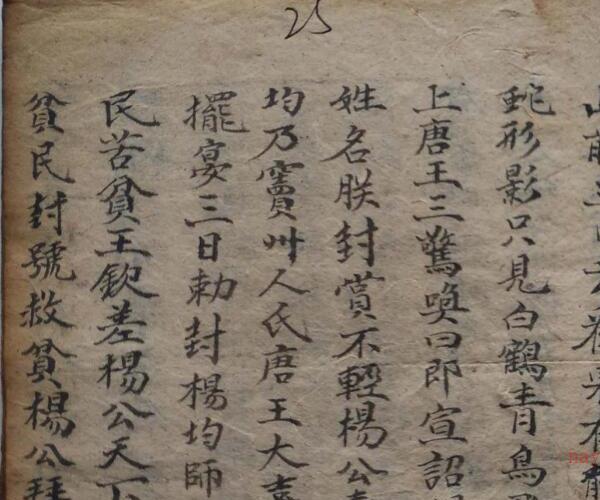 25
山前
蛇形影只見白鶴青鳥
上唐王三驚喚曰即宣詔
姓名朕封賞不輕楊公
均乃竇州人氏唐王大喜
擺宴三日勅封楊均師
民苦貧王欽差楊公天下
貧民封號救貧楊公